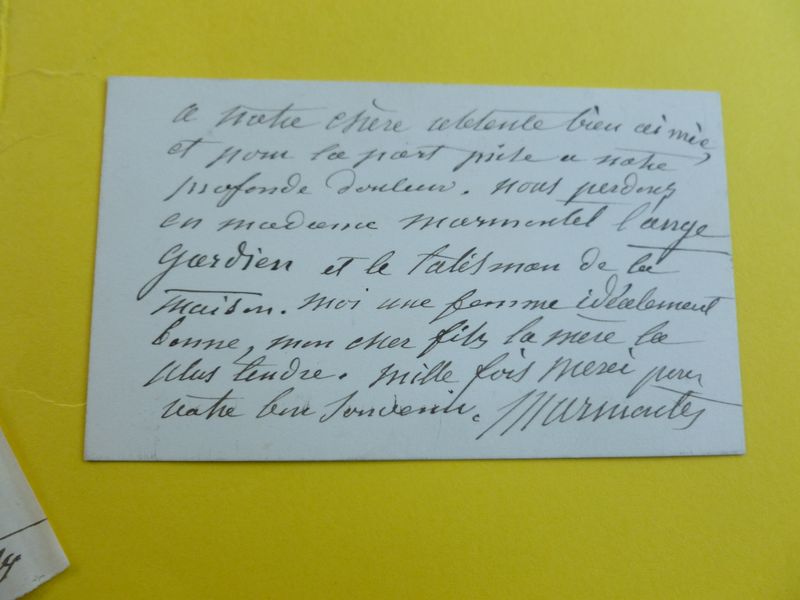 a notre chère attente bien aimée
et pour la part prise a notre
profonde douleur. nous perdons
en madame marmontel l'ange
gardien et le talisman de la
maison. moi une femme idéalement
bonne, mon cher fils la mère la
plus tendre. mille fois merci pour
votre bon souvenir. Marmontel